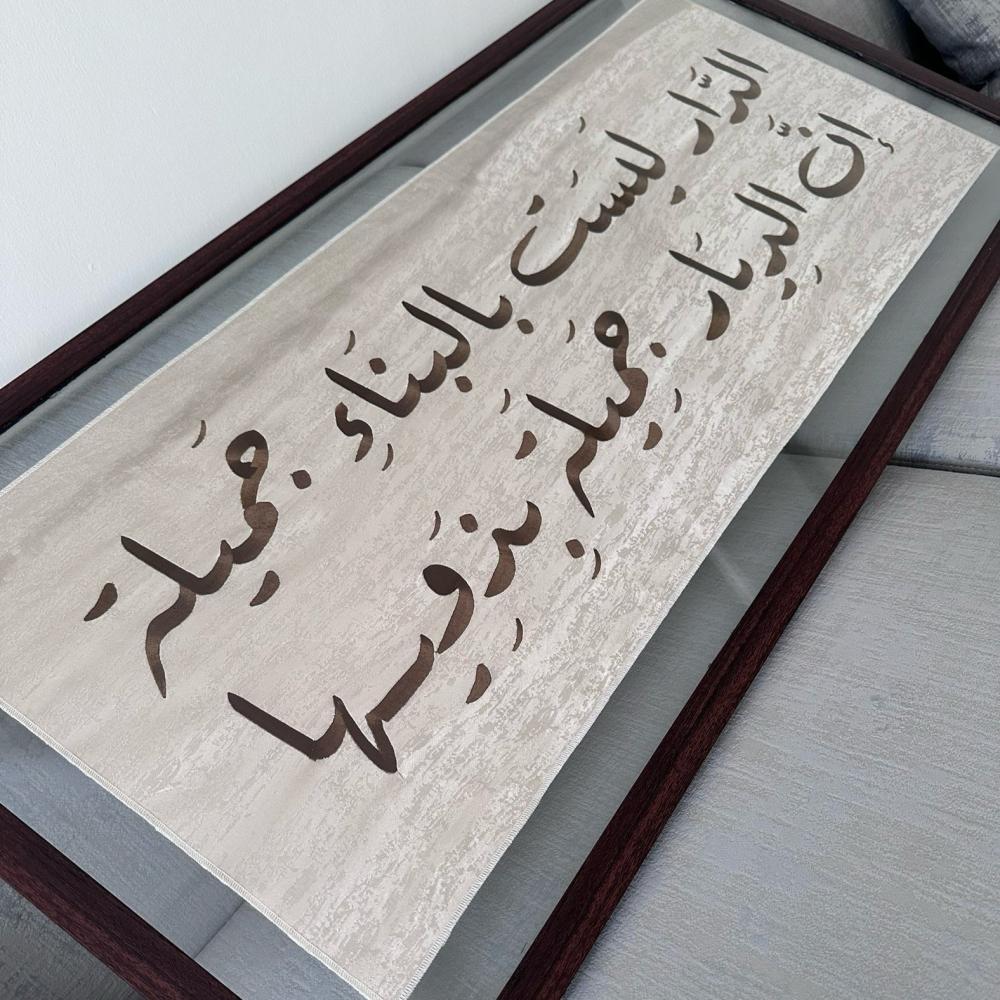 الدّار لَيسَت بالبناءِ جَميلَة
إنَّ الدِيَار جَمِيلَة بِذَوِيها